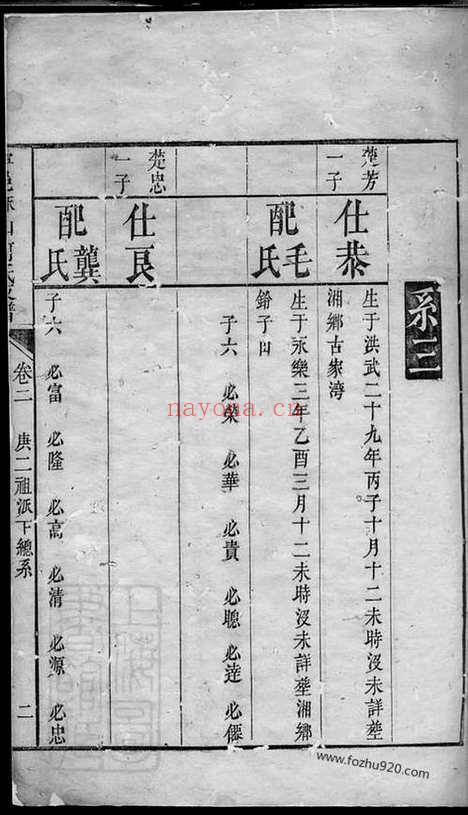 系三
楚芳
一子
仕恭
生于洪武二十九年丙子十月十二未時沒未詳塟
湘鄉古家湾
配毛氏
生于永樂三年乙酉三月十二未時沒未詳塟湘鄉
子六 必榮 必華 必貴 必聰 必達 必僊
楚忠
一子
仕良
配龔氏
子六 必富 必隆 必高 必清 必源 必忠
卷二 庚二祖派下總系 二
nayona.cn
www.fozhu920.com